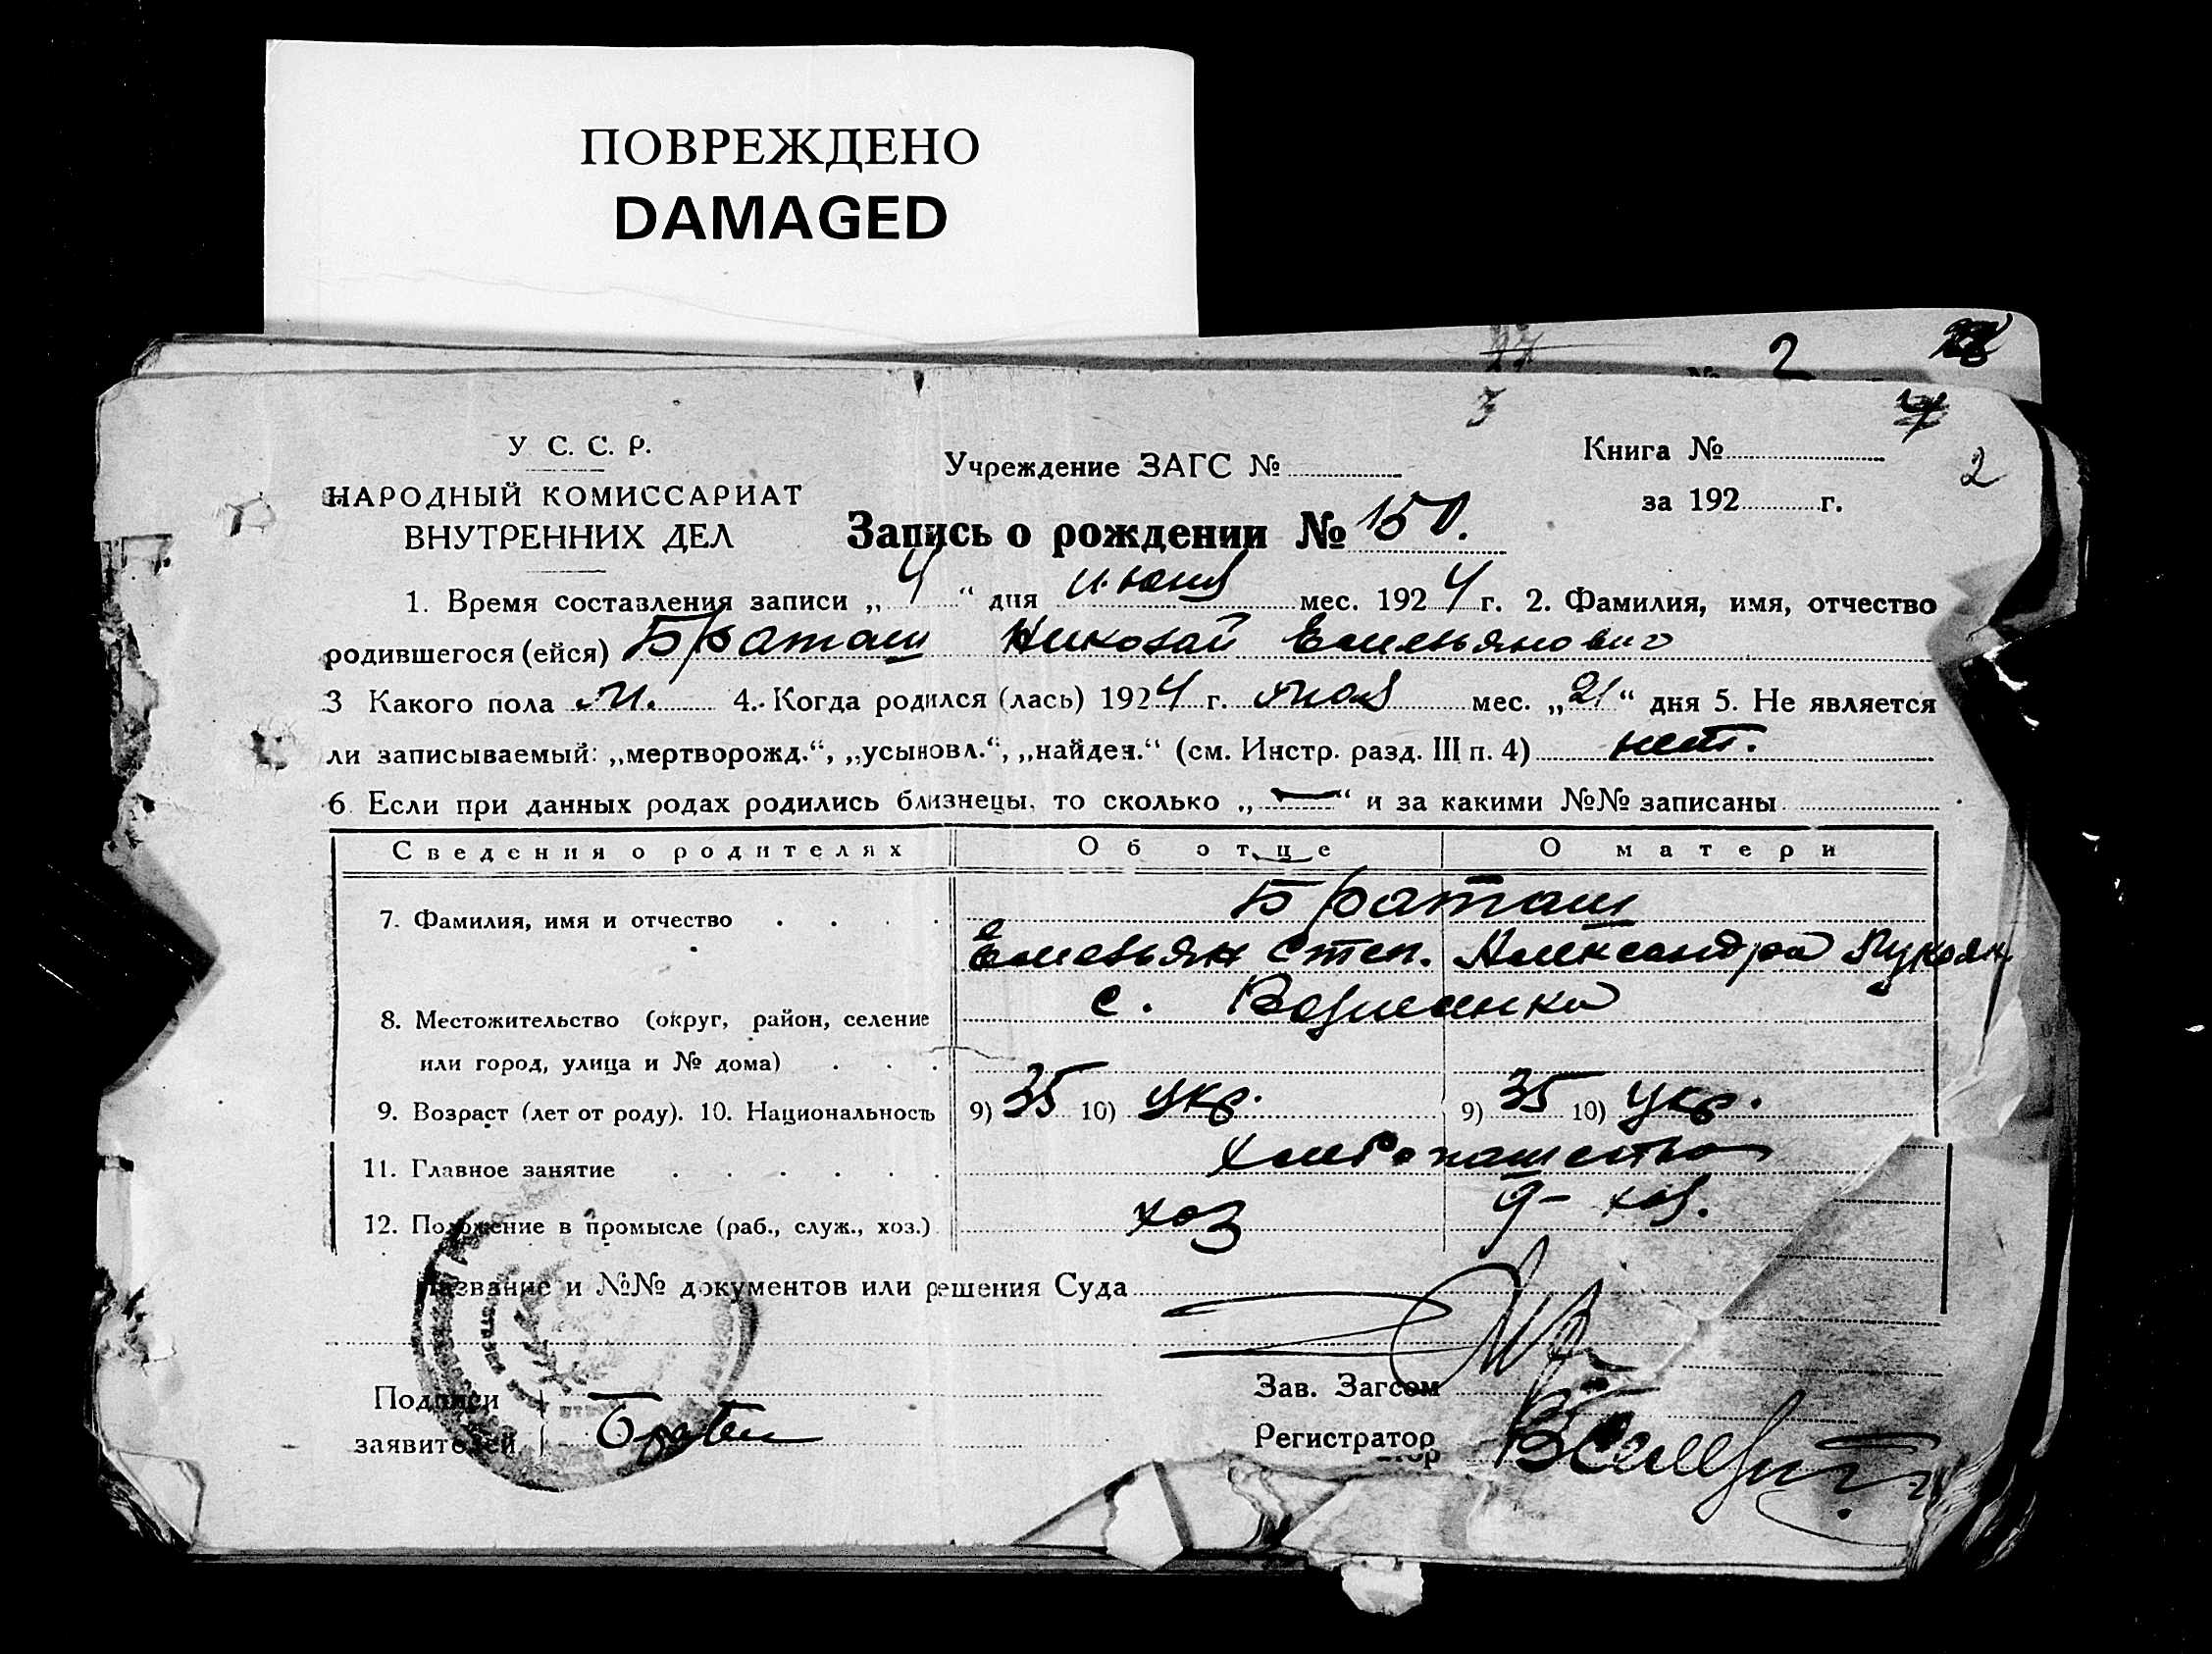 ПОВРЕЖДЕНО
DAMAGED
2
3
2
У С. С. Р.
НАРОДНЫЙ КОМИССАРИАТ
ВНУТРЕННИХ ДЕЛ
Учреждение ЗАГС №
Книга №
за 192 г.
Запись о рождении № 150.
1. Время составления записи „ 4 “ дня июня мес. 1924 г. 2. Фамилия, имя, отчество
родившегося (ейся) Браташ Николай Емельянович
3 Какого пола м. 4. Когда родился (лась) 1924 г. мая мес. „21“ дня 5. Не является
ли записываемый: „мертворожд.“, „усыновл.“, „найден.“ (см. Инстр. разд. III п. 4) нет.
6. Если при данных родах родились близнецы, то сколько „ — “ и за какими №№ записаны
Сведения о родителях Об отце О матери
7. Фамилия, имя и отчество Браташ
Емельян Степ. Александра Лукоян.
8. Местожительство (округ, район, селение с.
или город, улица и № дома)
9. Возраст (лет от роду). 10. Национальность 9) 35 10) Укр. 9) 35 10) Укр.
11. Главное занятие хлебопашество
12. Положение в промысле (раб., служ., хоз.) хоз
Название и №№ документов или решения Суда
Подписи
заявителей
Зав. Загсом
Регистратор